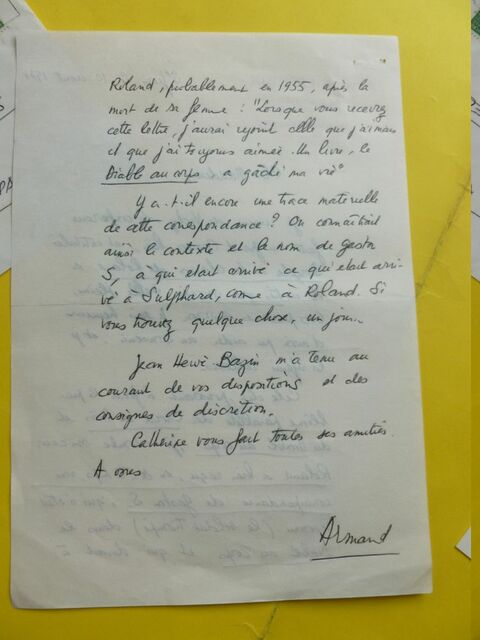 Roland, probablement en 1955, après la
mort de sa femme : "Lorsque vous recevrez
cette lettre, j'aurai rejoint celle que j'aimais
et que j'ai toujours aimée. Un livre, le
Diable au corps a gâché ma vie"
Y a-t-il encore une trace matérielle
de cette correspondance ? On connaîtrait
ainsi le contexte et le nom de Gaston
S, à qui était arrivé ce qui était arri-
vé à Sulphard, comme à Roland. Si
vous trouvez quelque chose, un jour...
Jean Hervé Bazin m'a tenu au
courant de vos dispositions et des
consignes de discrétion.
Catherine vous fait toutes ses amitiés.
A vous
Armand